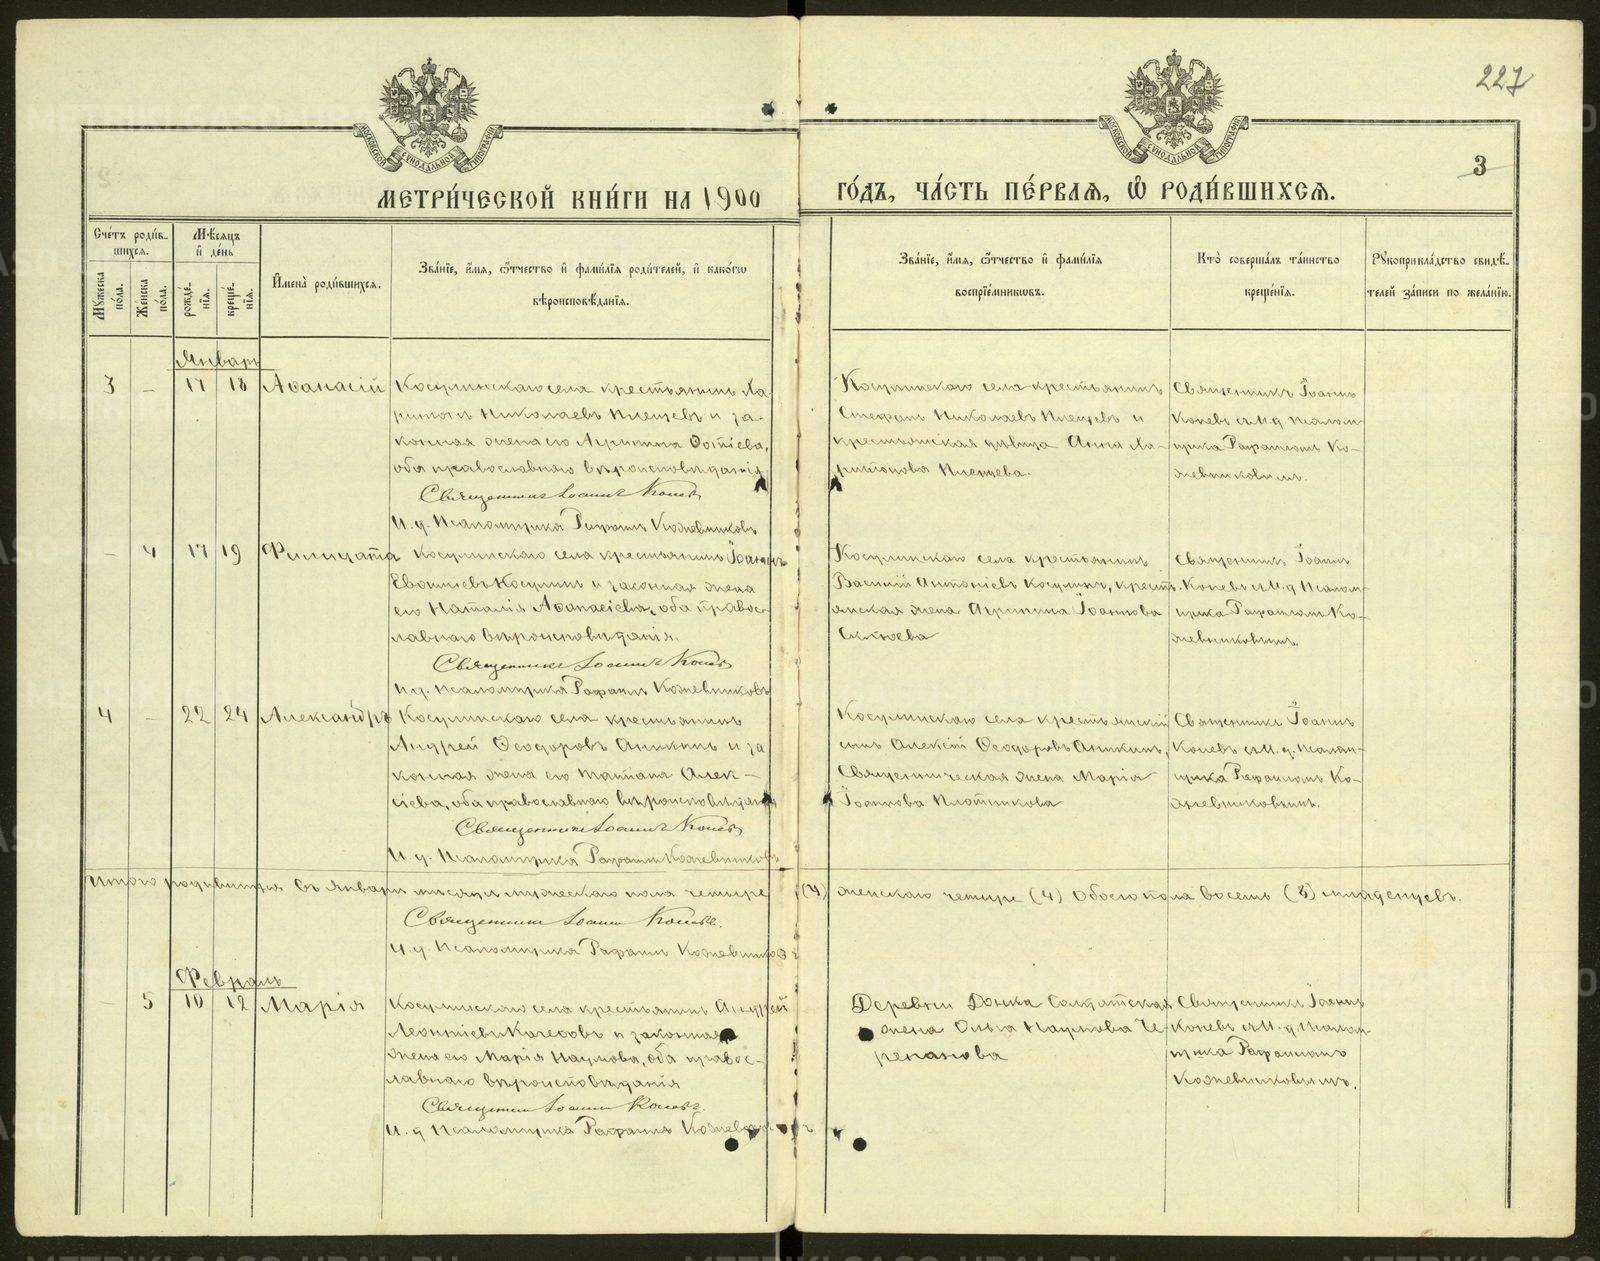 227
3
МЕТРИ́ЧЕСКОЙ КНИ́ГИ НА 1900
ГО́ДЪ, ЧА́СТЬ ПЕ́РВАЯ, Ѡ҆ РОДИ́ВШИХСЯ.
Сче́тъ роди́в-
шихся.
Мѣ́сяцъ
и҆ де́нь
Мꙋ́жеска
по́ла.
Же́нска
по́ла.
рожде́-
нїя.
креще́-
нїя.
И҆мена̀ роди́вшихся.
Зва́нїе, и҆́мя, ѻ҆́тчество и҆ фами́лїя роди́телей, и҆ како́гѡ
вѣроисповѣ́данїя.
Зва́нїе, и҆́мя, ѻ҆́тчество и҆ фами́лїя
воспрїе́мникѡвъ.
Кто̀ соверша́лъ та́инство
креще́нїя.
Рꙋкоприкла́дство свидѣ́-
телей за́писи по жела́нїю.
Январь
3 – 17 18 Аѳанасій
Косулинскаго села крестьянинъ Ха-
ритонъ Николаевъ Плещевъ и за-
конная жена его Агрипина Фотіева,
оба православнаго вѣроисповѣданія
Священникъ Іоаннъ Коневъ
И. д. Псаломщика Рафаилъ Кожевниковъ
Косулинскаго села крестьянинъ
Стефанъ Николаевъ Плещевъ и
крестьянская дѣвица Анна Ха-
ритонова Плещева.
Священникъ Іоаннъ
Коневъ съ И. д. псалом-
щика Рафаиломъ Ко-
жевниковымъ.
– 4 17 19 Филицата
Косулинскаго села крестьянинъ Іоаннъ
Косулинъ и законная жена
его Наталія Аѳанасіева, оба правос-
лавнаго вѣроисповѣданія.
Священникъ Іоаннъ Коневъ
И д. псаломщика Рафаилъ Кожевниковъ
Косулинскаго села крестьянинъ
Василій Антоніевъ Косулинъ, крест-
янская жена Агрипина Іоаннова
Священникъ Іоаннъ
Коневъ съ И. д. Псалом-
щика Рафаиломъ Ко-
жевниковымъ.
4 – 22 24 Александръ
Косулинскаго села крестьянинъ
Андрей Ѳеодоровъ Аникинъ и за
конная жена его Татіана Алек-
сіева, оба православнаго вѣроисповѣданія
Священникъ Іоаннъ Коневъ
И. д. Псаломщика Рафаилъ Кожевниковъ
Косулинскаго села крестьянскій
сынъ Алексій Ѳеодоровъ Аникинъ,
Священническая жена Марія
Іоаннова Плотникова
Священникъ Іоаннъ
Коневъ съ И. д. псалом-
щика Рафаиломъ Ко-
жевниковымъ.
Итого родившихся въ Январѣ мѣсяцѣ мужескаго пола четыре (4) женскаго четыре (4) обоего пола восемь (8) младенцевъ.
Священникъ Іоаннъ Коневъ.
И. д. Псаломщика Рафаилъ Кожевниковъ
Февраль
– 5 10 12 Марія
Косулинскаго села крестьянинъ Андрей
Леонтіевъ и законная
жена его Марія Наумова, оба правос-
лавнаго вѣроисповѣданія
Священникъ Іоаннъ Коневъ.
И. д. Псаломщика Рафаилъ Кожевниковъ
Деревни солдатская
жена Ольга Наумова Че-
репанова
Священникъ Іоаннъ
Коневъ съ И. д. Псалом-
щика Рафаиломъ
Кожевниковымъ.